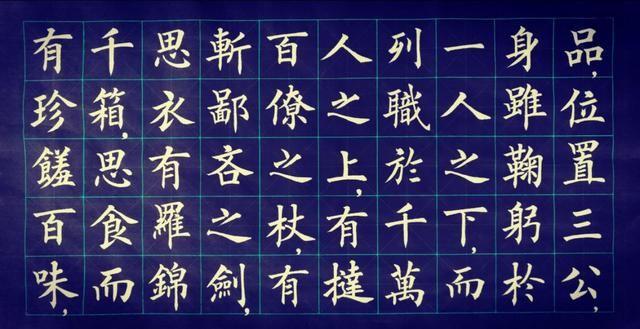 品,位置三公,
身雖鞠躬於
一人之下,而
列職於千萬
人之上,有撻
百僚之杖,有
斬鄙吝之劍,
思衣有羅錦
千箱,思食而
有珍饈百味,